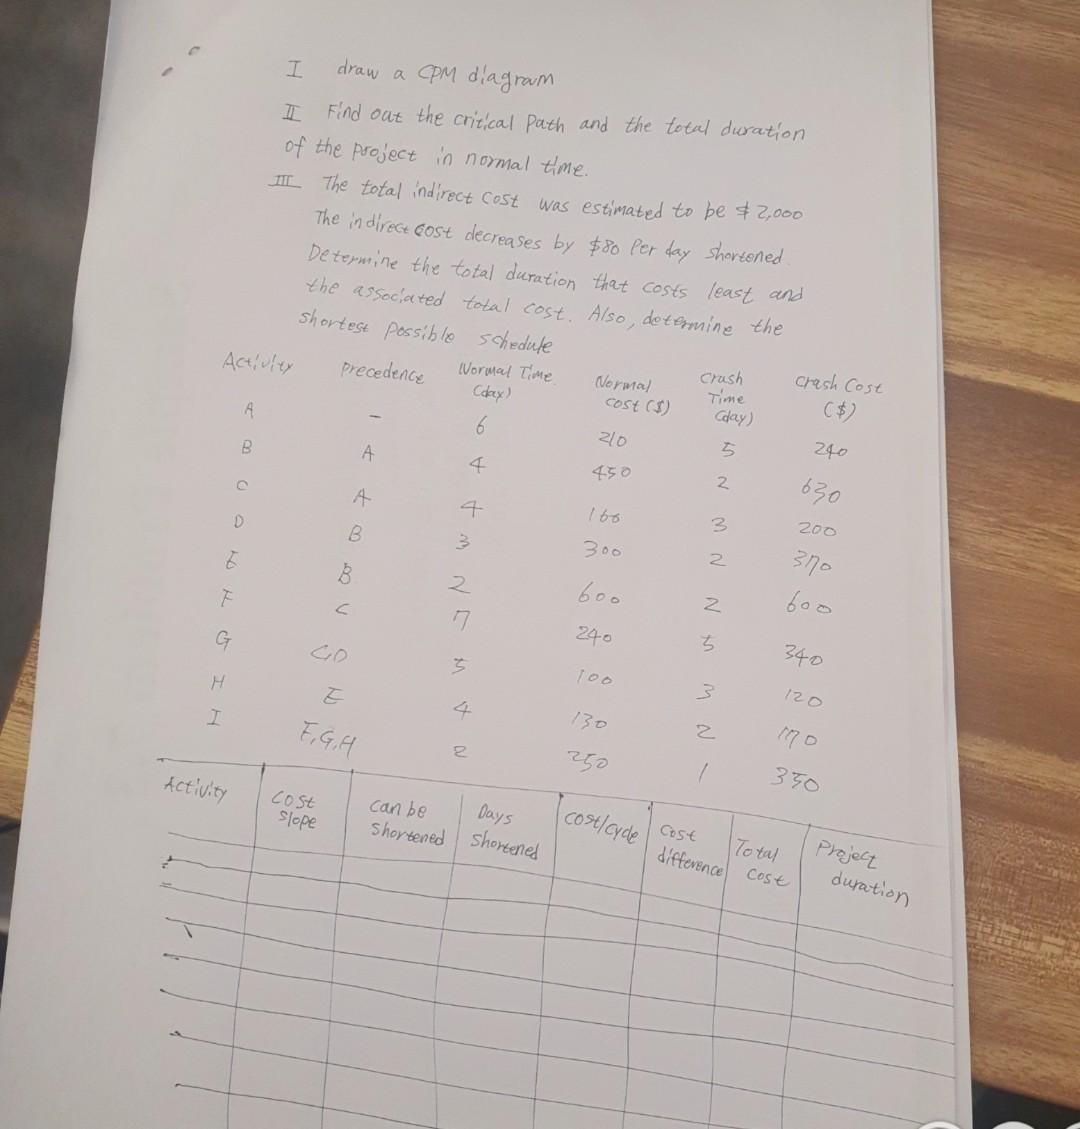 I draw a CPM diagram
II Find out the critical path and the total duration
of the project in normal time.
III The total indirect cost was estimated to be $2,000
The indirect cost decreases by $80 Per day shortened.
Determine the total duration that costs least and
the associated total cost. Also, determine the
shortest possible schedule
Activity precedence Normal Time (day) Normal cost ($) crash Time (day) crash Cost ($)
A - 6 210 5 240
B A 4 450 2 630
C A 4 160 3 200
D B 3 300 2 370
E B 2 600 2 600
F C 7 240 5 340
G C,D 5 100 3 120
H E 4 130 2 170
I F,G,H 2 250 1 350
Activity Cost slope can be shortened Days shortened cost/cycle Cost difference Total cost Project duration